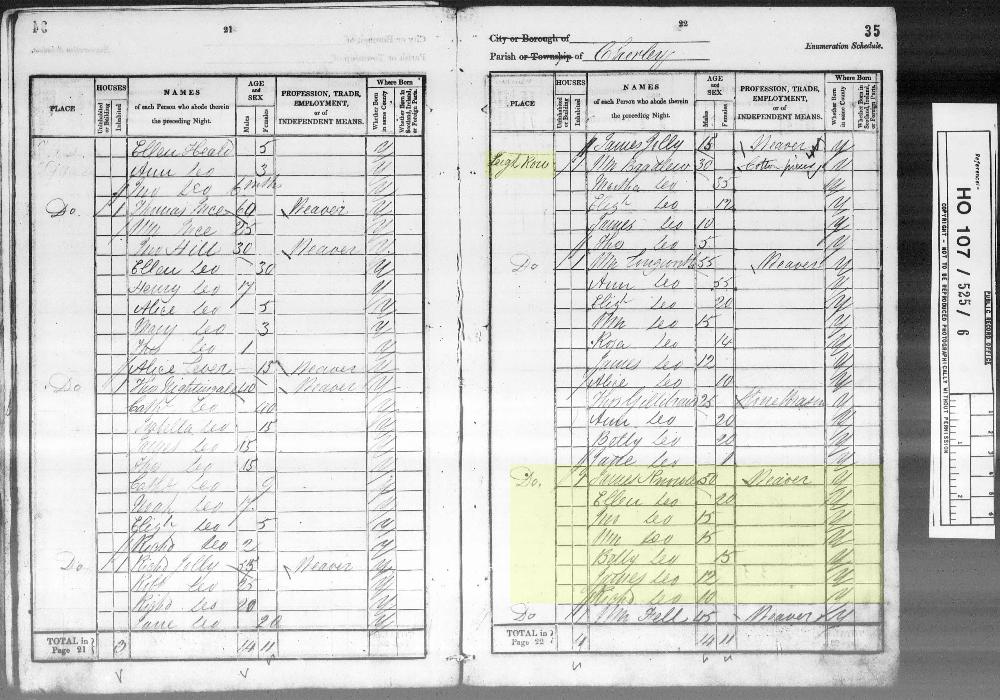 34
21
HOUSES
AGE and SEX
Where Born
PLACE
Uninhabited or Building
Inhabited
NAMES of each Person who abode therein the preceding Night.
Males
Females
PROFESSION, TRADE, EMPLOYMENT, or of INDEPENDENT MEANS.
Whether Born in same County
Whether Born in Scotland, Ireland, or Foreign Parts.
Ellen Heald 5 y
Ann Do 3 y
Jno Do 6 mths y
Do 1 Thomas 60 Weaver y
Wm 25 y
Jno Hill 30 Weaver y
Ellen Do 30 y
Henry Do 7 y
Alice Do 5 y
Do 3 y
Tho Do 1 y
Alice 15 Weaver y
Do 1 Thos Nightingale 40 Weaver y
Cath Do 40 y
Do 15 y
James Do 15 y
Tho Do 15 y
Cath Do 9 y
Do 7 y
Eliz Do 5 y
Richd Do 2 y
Do 1 Richd Jolly 55 Weaver y
Do 55 y
Richd Do 20 y
Jane Do 20 y
TOTAL in Page 21 3 14 11
22
35
City or Borough of
Enumeration Schedule.
Parish or Township of Chorley
HOUSES
AGE and SEX
Where Born
PLACE
Uninhabited or Building
Inhabited
NAMES of each Person who abode therein the preceding Night.
Males
Females
PROFESSION, TRADE, EMPLOYMENT, or of INDEPENDENT MEANS.
Whether Born in same County
Whether Born in Scotland, Ireland, or Foreign Parts.
James Jolly 15 Weaver y
Leigh Row 1 Wm 30 y
Martha Do 35 y
Eliz Do 12 y
James Do 10 y
Tho Do 5 y
Do 1 Wm Longworth 55 Weaver y
Ann Do 55 y
Eliz Do 20 y
Wm Do 15 y
Rosa Do 14 y
James Do 12 y
Alice Do 10 y
Thos Gillibrand 25 y
Ann Do 20 y
Betty Do 20 y
Jane Do 1 y
Do 1 James 50 Weaver y
Ellen Do 20 y
Jno Do 15 y
Wm Do 15 y
Betty Do 15 y
James Do 12 y
Richd Do 10 y
Do 1 Wm Fell 45 Weaver y
TOTAL in Page 22 4 14 11
PUBLIC RECORD OFFICE
Reference:-
HO 107 / 525 / 6
COPYRIGHT - NOT TO BE REPRODUCED PHOTOGRAPHICALLY WITHOUT PERMISSION